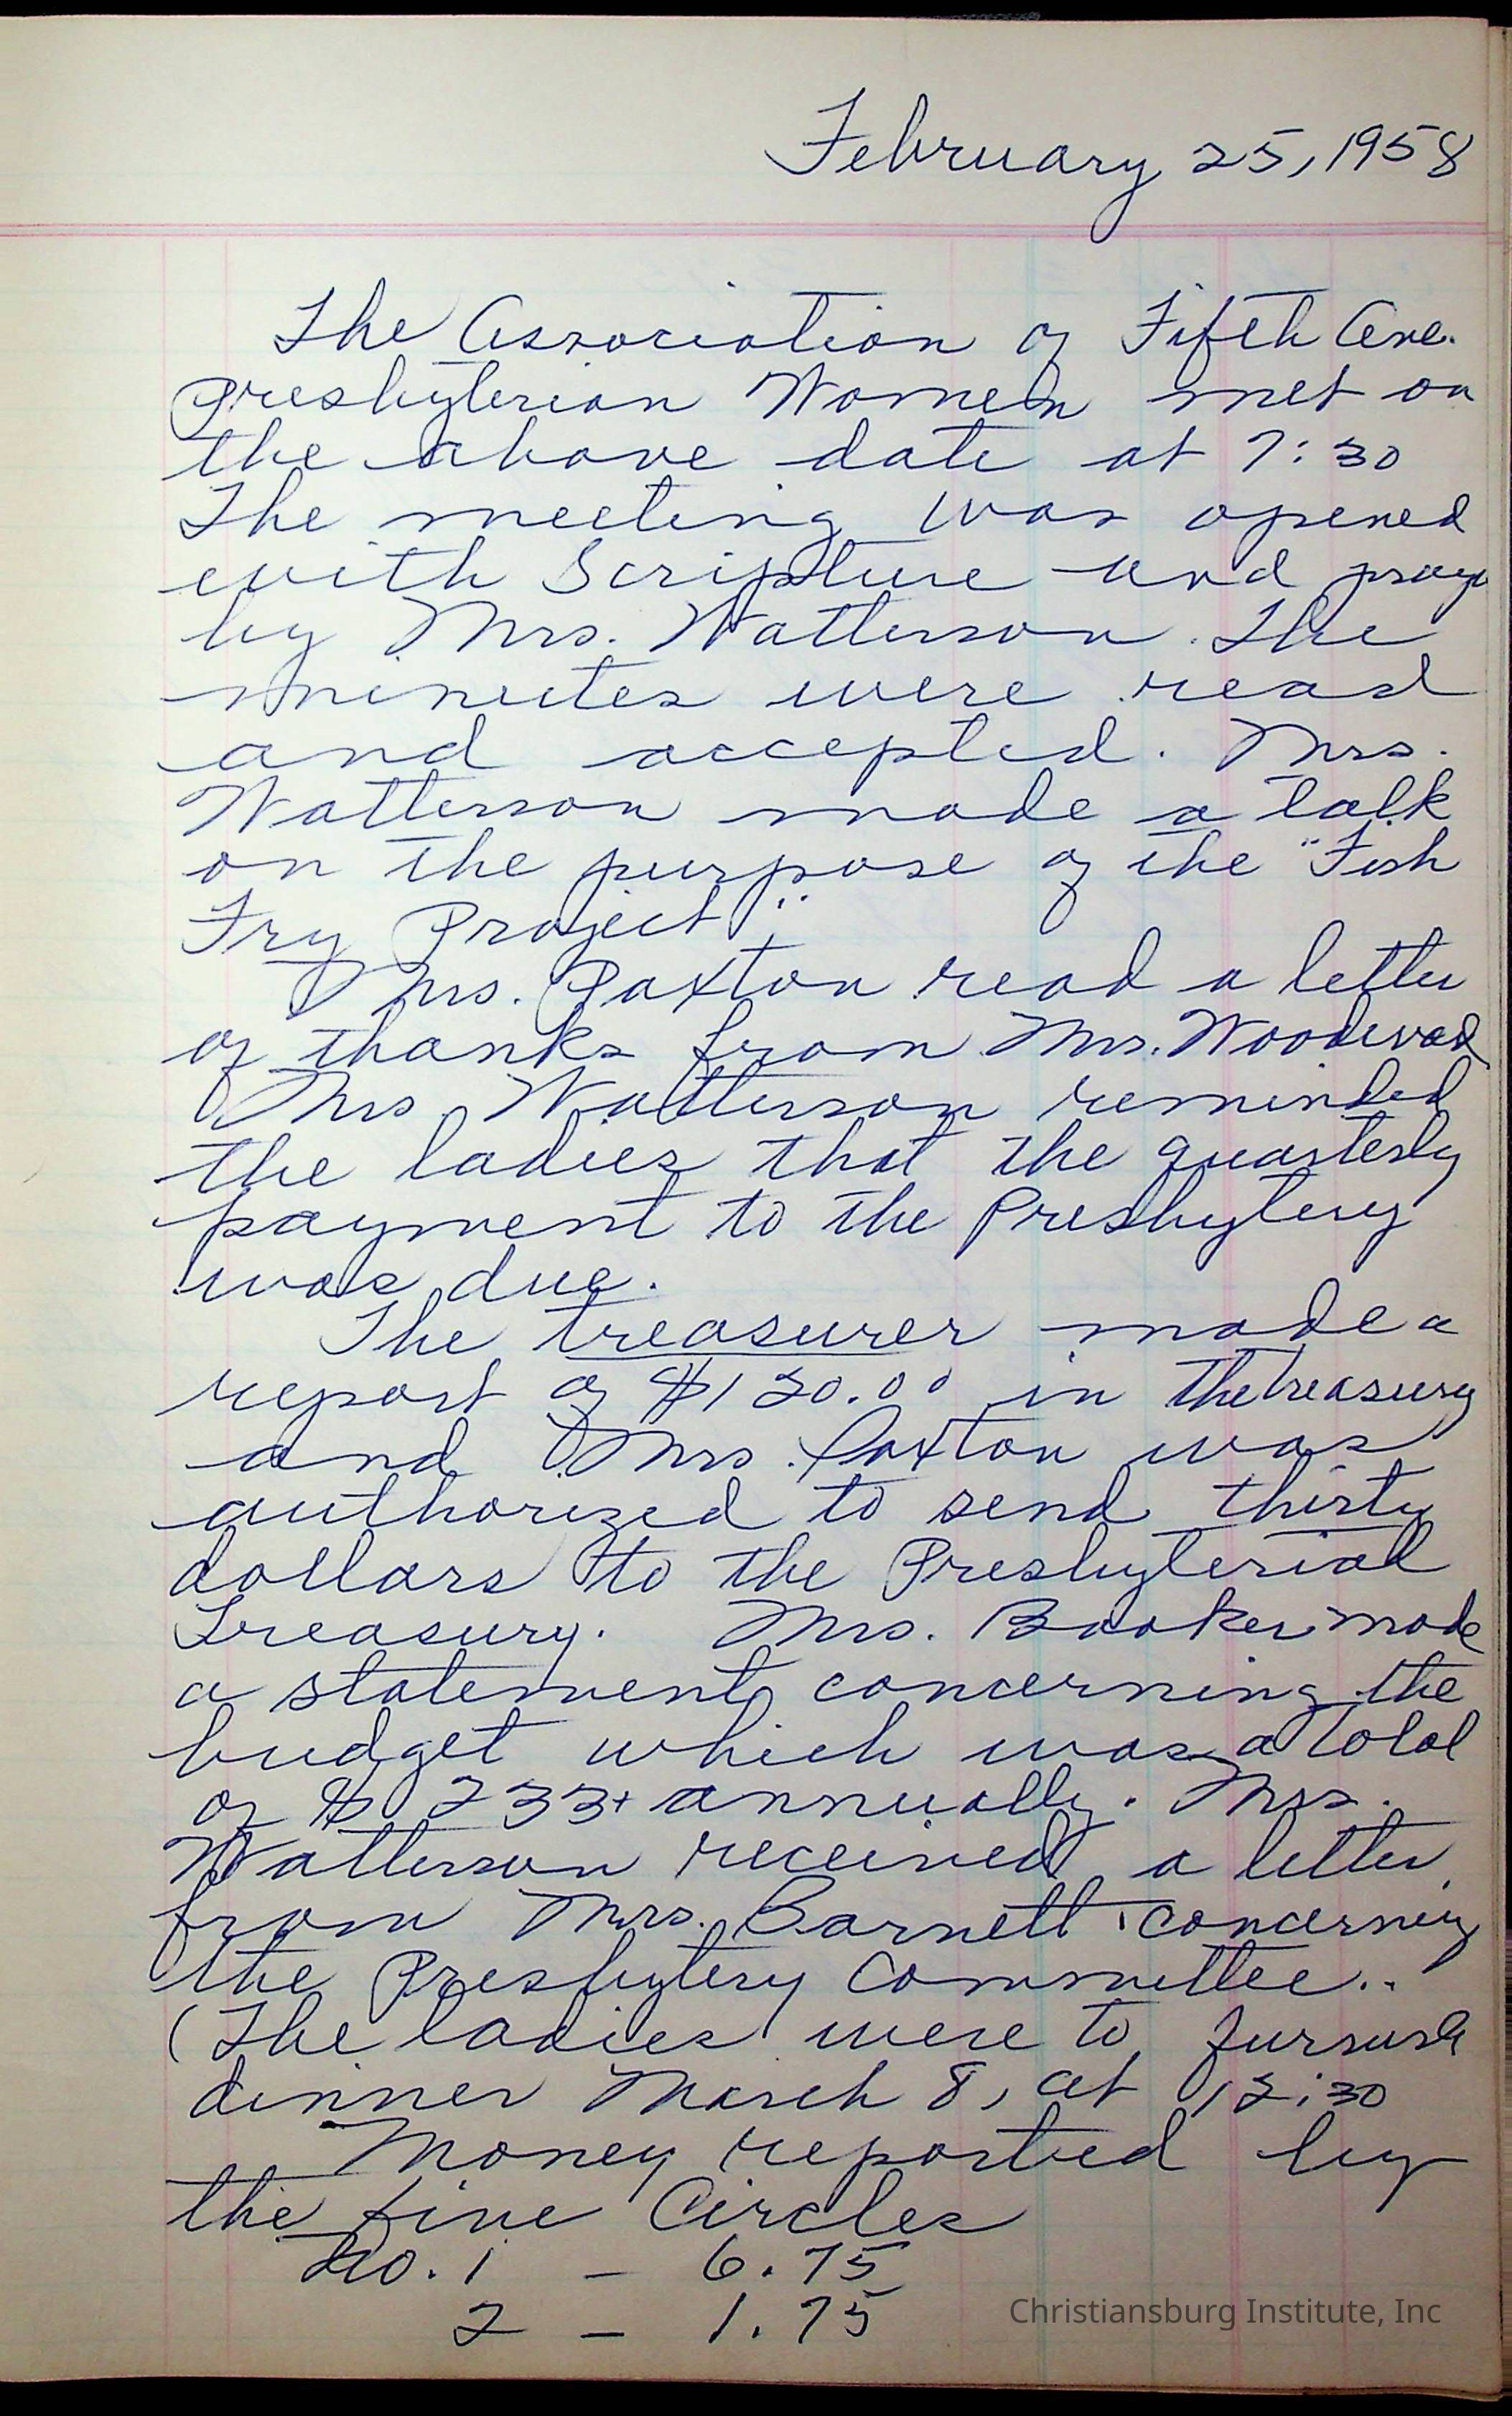 February 25, 1958
The Association of Fifth Ave.
Presbyterian Women met on
the above date at 7:30
The meeting was opened
with Scripture and prayer
by Mrs. Watterson. The
minutes were read
and accepted. Mrs.
Watterson made a talk
on the purpose of the "Fish
Fry Project".
Mrs. Paxton read a letter
of thanks from Mrs. Woodward
Mrs. Watterson reminded
the ladies that the quarterly
payment to the Presbytery
was due.
The treasurer made a
report of $130.00 in the treasury
and Mrs. Paxton was
authorized to send thirty
dollars to the Presbyterial
Treasury. Mrs. Booker made
a statement concerning the
budget which was a total
of $ 233+ annually. Mrs.
Watterson received a letter
from Mrs. Barnett concerning
the Presbytery Committee..
(The ladies were to furnish
dinner March 8, at 12:30
Money reported by
the five Circles
No. 1 – 6.75
2 – 1.75
Christiansburg Institute, Inc